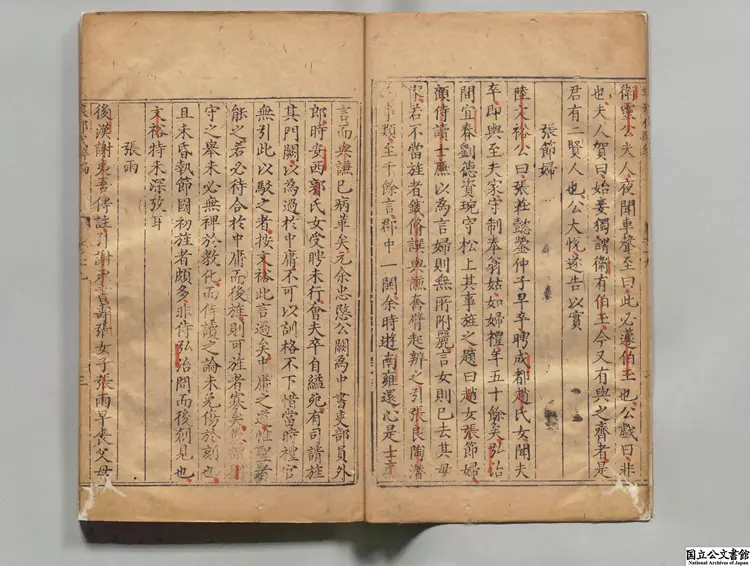 衛靈公夫人夜聞車聲至曰此必蘧伯玉也公戲曰非
也夫人賀曰始妾獨謂衛有伯玉今又有與之齊者是
君有二賢人也公大悅遂告以實
張節婦
陸文裕公曰張
仲子早卒聘成都趙氏女聞夫
卒即與至夫家守制奉翁姑如婦禮年五十餘矣弘治
間宜春劉德資琬守松上其事旌之題曰趙女張節婦
顧侍讀士廉以為言婦則無所附麗言女則已去其母
家若不當旌者錢脩譔與謙奮臂起辨之引張良陶潛
事類至千餘言郡中一鬨余時遊南雍還心是士廉
言而與謙已病革矣元余忠愍公闕為中書吏部員外
郎時安西郭氏女受聘未行會夫卒自縊死有司請旌
其門闕以為過於中庸不可以訓格不下惜當時禮官
無引此以駁之者按文裕此言過矣中庸之道惟聖者
能之若必待合於中庸而後旌則可旌者寡矣
守之舉未必無裨於教化而侍讀之論未免傷於刻也
且未昏執節國初旌者頗多非待弘治間而後創見也
文裕特未深攷耳
張雨
後漢謝夷吾傳註引謝承書壽張女子張雨早喪父母
三
国立公文書館
National Archives of Japan